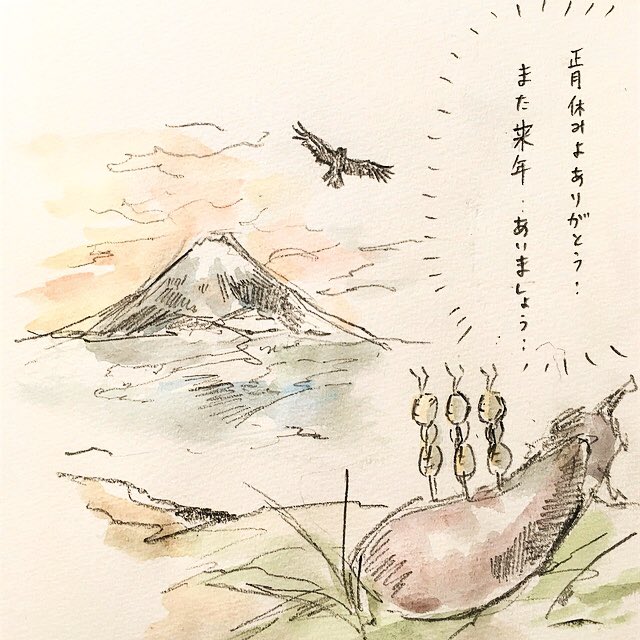 正月休みよありがとう:
また来年:あいましょう: